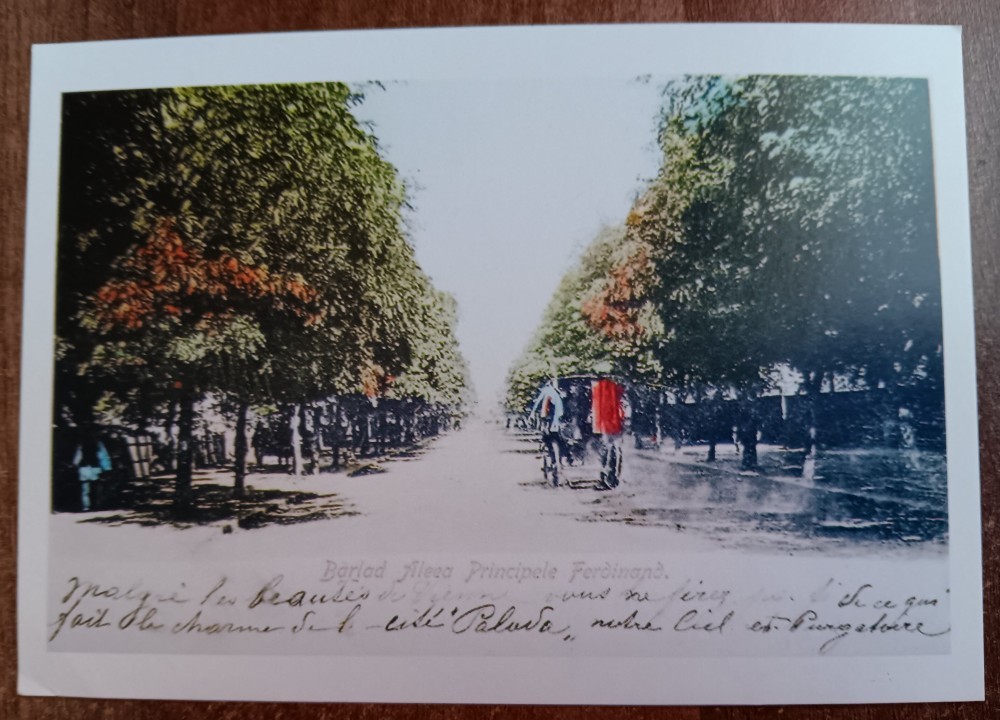 Barlad Aleea Principele Ferdinand.
Malgré les beautés de vous ne de ce qui
fait le charme de l cité "Paluda„ notre Ciel et Purgatoire